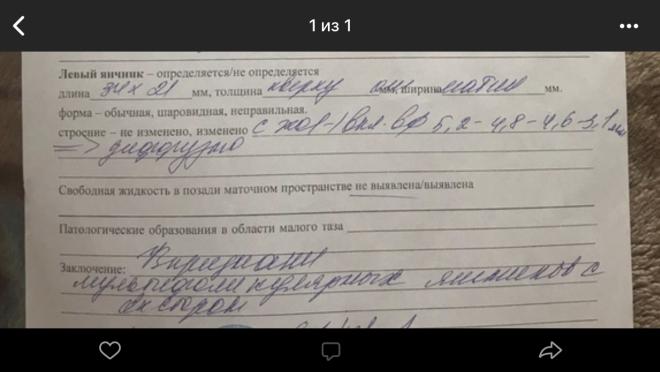 1 из 1
Левый яичник – определяется/не определяется
длина 34 х 21 мм, толщина кверху от мм, ширина матки мм.
форма – обычная, шаровидная, неправильная.
строение – не изменено, изменено с эхо(-) вкл. 5,2 – 4,8 – 4,6 – 3,1 мм
=> диффузно
Свободная жидкость в позади маточном пространстве не выявлена/выявлена
Патологические образования в области малого таза
Заключение:
мультифолликулярных яичников с
сторон